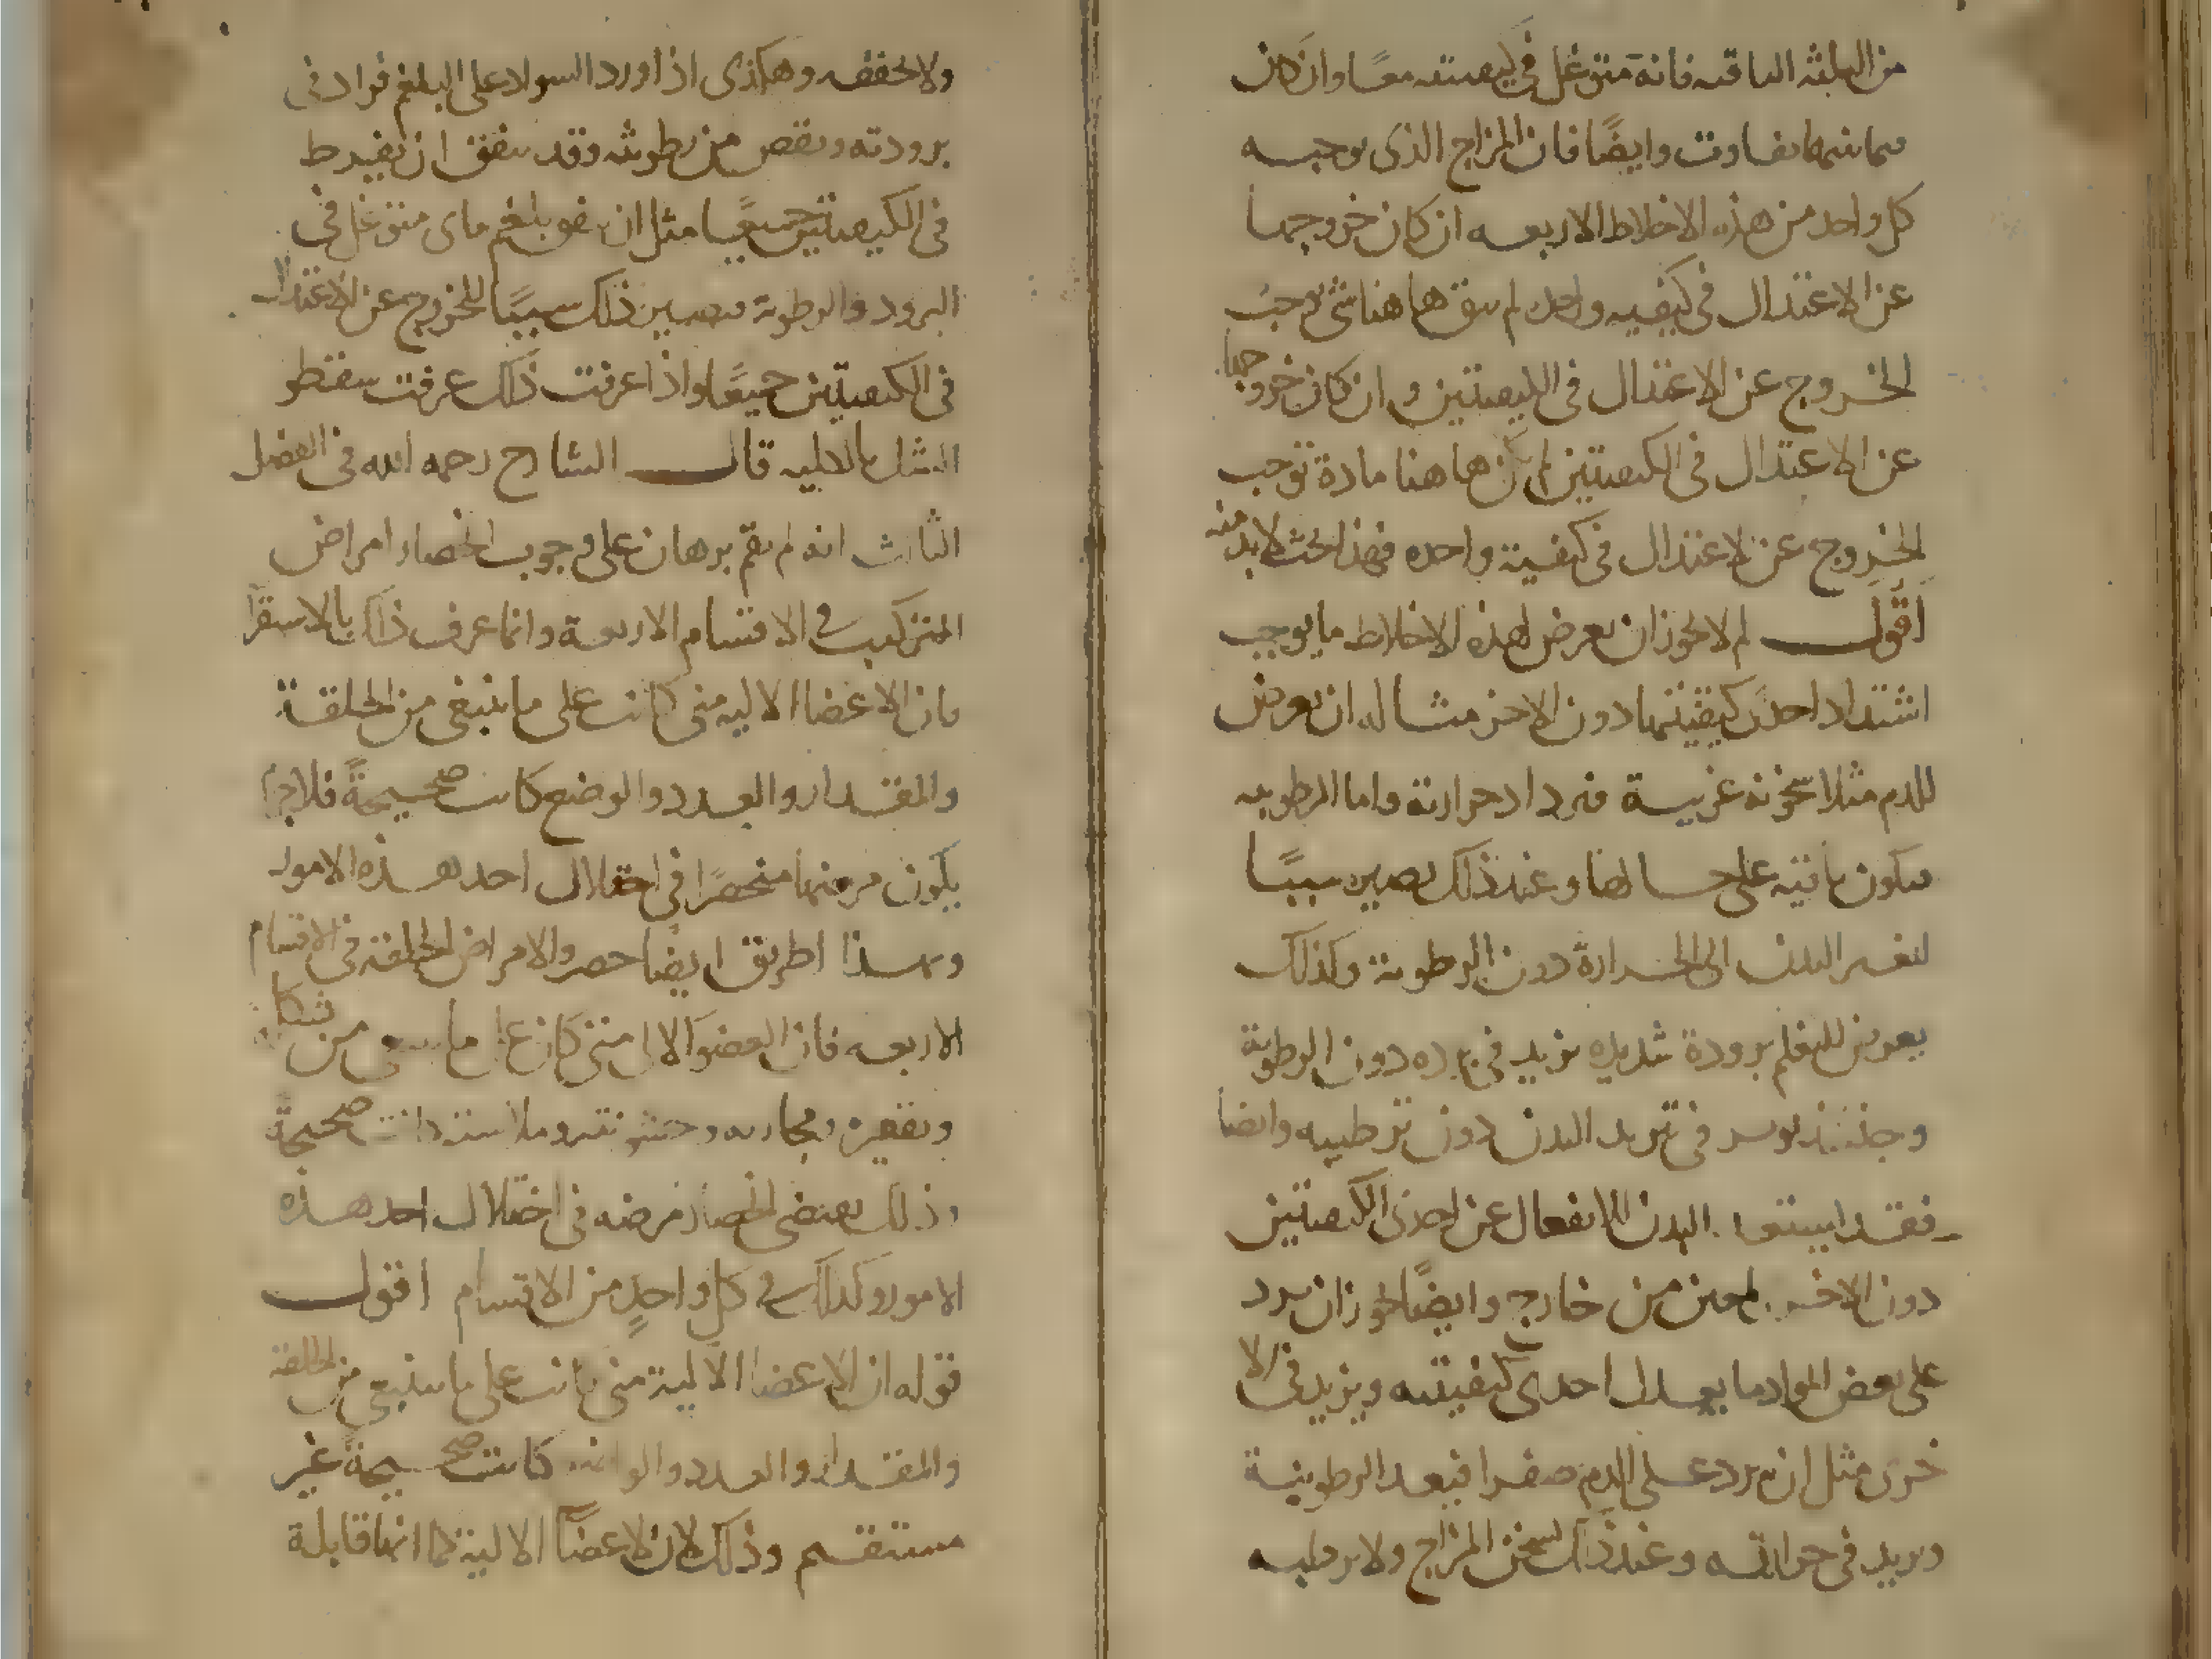 من الثلثه الباقيه فانه متوغل في كيفيته معًا وان كان
فيما بينهما تفاوت وايضًا فان المزاج الذي يوجبه
كل واحد من هذه الاخلاط الاربعه ان كان خروجها
عن الاعتدال في كيفيه واحده لم يبق هاهنا شي يوجب
الخروج عن الاعتدال في الكيفيتين وان كان خروجها
عن الاعتدال في الكيفيتين لم يكن هاهنا مادة توجب
الخروج عن الاعتدال في كيفية واحده فهذا بحث لا بد منه
اقول لم لا يجوز ان يعرض لهذه الاخلاط ما يوجب
اشتداد احد كيفيتها دون الاخر مثاله ان يعرض
للدم مثلا سخونة غريبة فيزداد حرارته واما الرطوبه
فيكون باقيه على حالها وعند ذلك يصير سببًا
لتغير البدن الى الحرارة دون الرطوبة وكذلك
يعرض للبلغم برودة شديده تزيد في برده دون الرطوبة
وحينئذ يوثر في تبريد البدن دون ترطيبه وايضا
فقد البدن للانفعال عن احدى الكيفيتين
دون الاخر من خارج وايضًا يجوز ان يرد
على بعض المواد ما يعدل احدى كيفيتيه ويزيد في الا
خرى مثل ان يرد على الدم صفرا فيعدل رطوبته
ويزيد في حرارته وعند ذلك يسخن المزاج ولا يرطبه
ولا يجففه وهكذى اذا ورد السودا على البلغم فزاد في
برودته ونقص من رطوبته وقد يتفق ان يفرط
في الكيفيتين جميعًا مثل ان هو بلغم ماى متوغل في
البرود والرطوبة فيصير ذلك سببًا للخروج عن الاعتدال
في الكيفيتين جميعًا واذا عرفت ذلك عرفت سقوط
الشك بالكليه قال الشارح رحمه الله في الفصل
الثالث انه لم يقم برهان على وجوب انحصار امراض
التركيب في الاقسام الاربعة وانما عرف ذلك بالاستقرا
فان الاعضا الاليه متى كانت على ما ينبغي من الخلقة
والمقدار والعدد والوضع كانت صحيحةً فلا جرم
يكون مرضها منحصرًا في اختلال احد هذه الامور
وبهذا الطريق ايضا حصروا الامراض الخلقة في الاقسام
الاربعه فان العضو الالى متى كان على ما ينبغي من شكل
وتقعيره ومجاريه وخشونته وملاسته كانت صحيحة
وذلك يقتضى انحصار مرضه في اختلال احد هذه
الامور وكذلك في كل واحدٍ من الاقسام اقول
قوله ان الاعضا الالية متى كانت على ما ينبغي من الخلقة
والمقدار والعدد والوضع كانت صحيحةً غير
مستقيم وذلك لان الاعضاً الالية كما انها قابلة